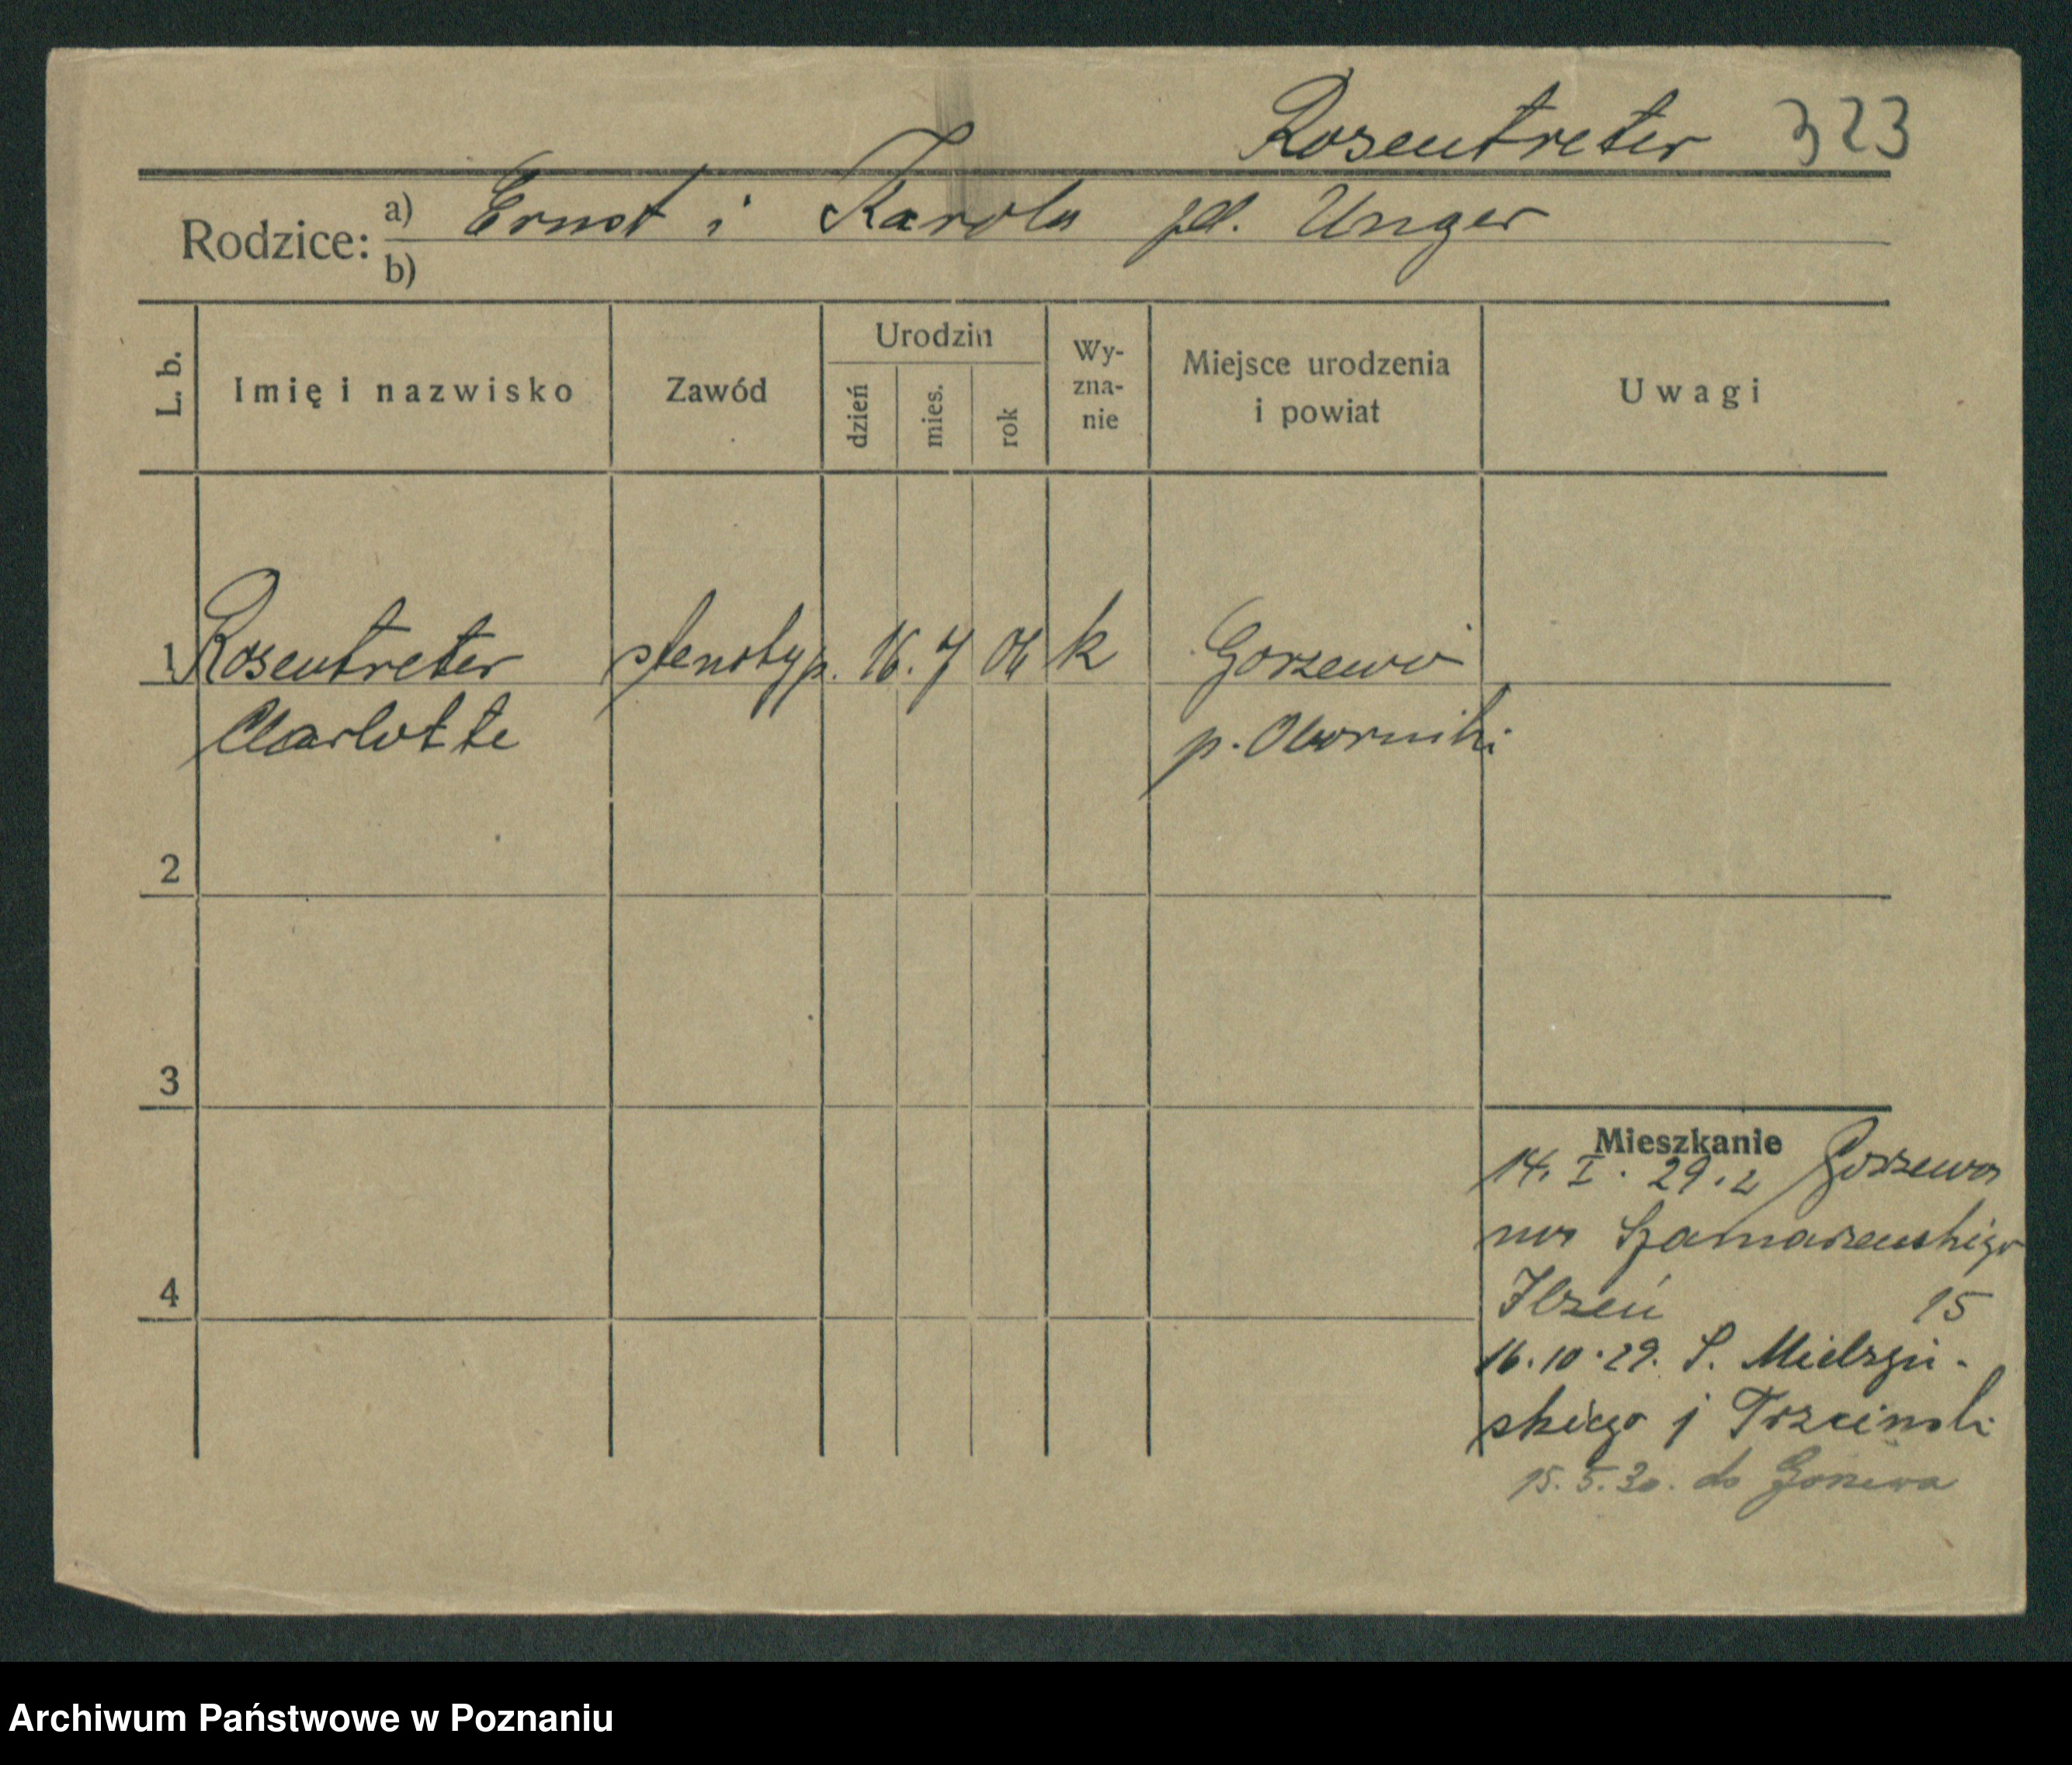 Rosentreter 323
Rodzice: a) Ernst i Karola zd. Unger
b)
L. b. Imię i nazwisko Zawód Urodzin dzień mies. rok Wy-zna-nie Miejsce urodzenia i powiat Uwagi
1 Rosentreter stenotyp. 16. 7 06 k Gorzewo
Charlotte p. Oborniki
2
3
4
Mieszkanie
14. I. 29. z Gorzewa
na Szamarzewskiego
15
16.10.29. S. Mielżyń-
skiego j Trzcinski
15.5.30. do Gorzewa
Archiwum Państwowe w Poznaniu